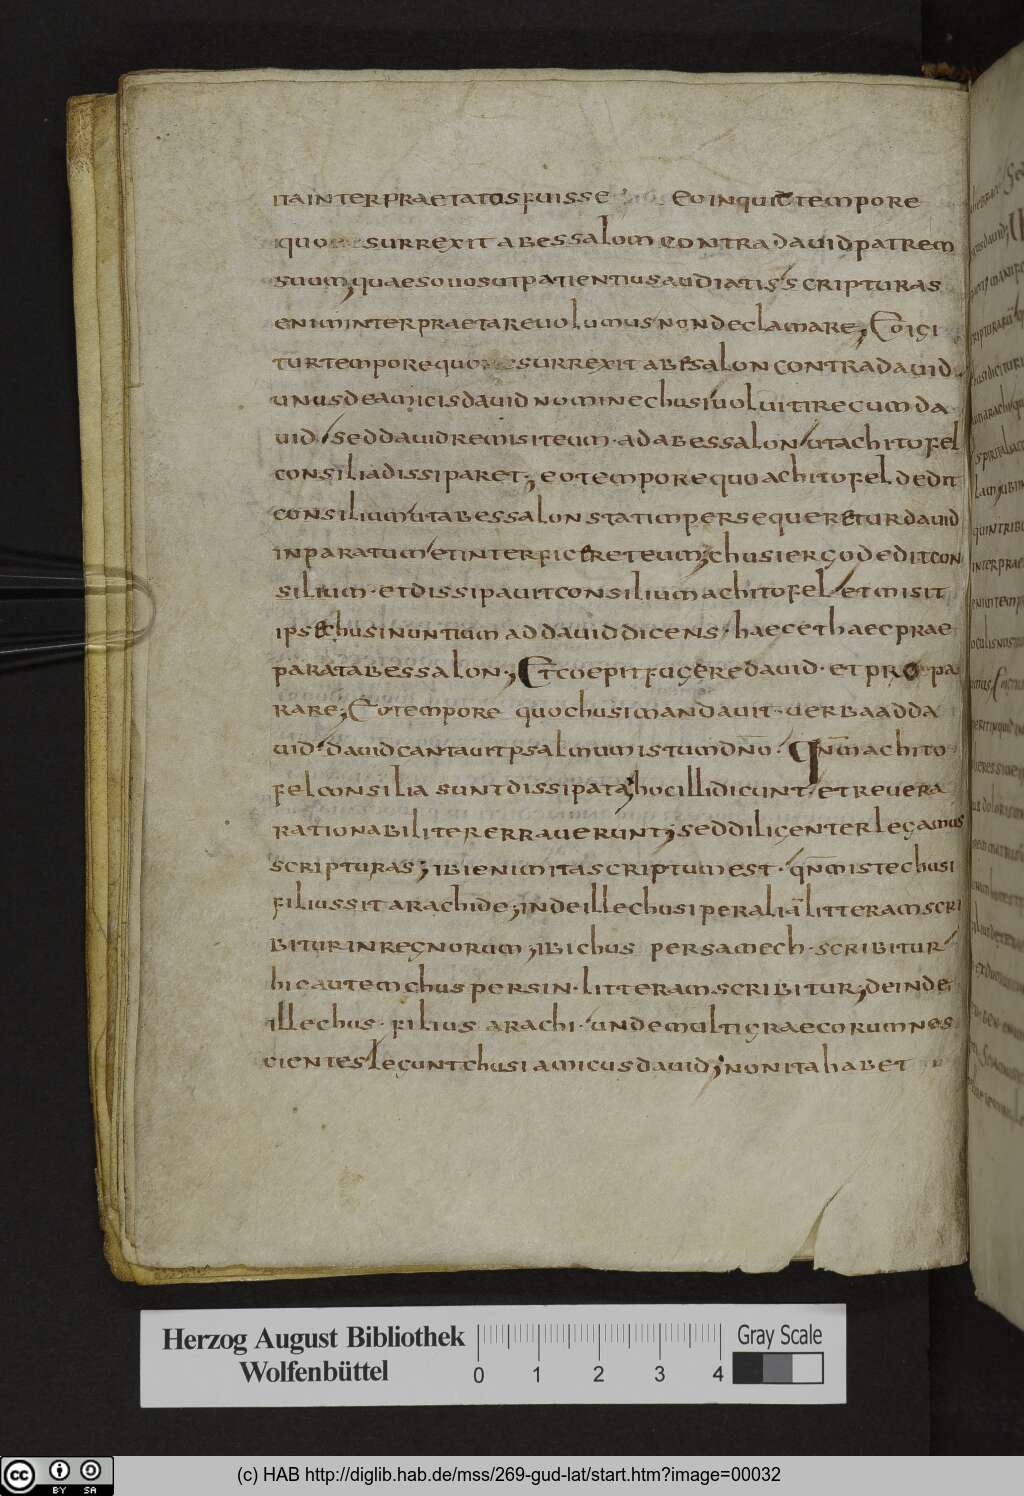 na interpraetatos fuisse eo inquit tempore
quo surrexit abessalom contra dauid patrem
suum; quaeso uos ut patientius audiatis scripturas
enim interpraetare uolumus non declamare; Eo igi
tur tempore quo surrexit abesalon contra dauid
unus de amicis dauid nomine chusi uoluit ire cum da
uid sed dauid remisit eum · ad abessalon ut achitofel
consilia dissiparet; eo tempore quo achitofel dedit
consilium ut abessalon statim persequeretur dauid
inparatum et interficeret eum; chusi ergo dedit con
silium · et dissipauit consilium achitofel et misit
ipse chusi nuntium ad dauid dicens · haec et haec prae
parat abessalon; Et coepit fugere dauid · et pro pa
rare; Eo tempore quo chusi mandauit · uerba ad da
uid · dauid cantauit psalmum istum dño · Qnm̄ achito
fel consilia sunt dissipata; hoc illi dicunt · et reuera
rationabiliter errauerunt; sed diligenter legamus
scripturas; ibi enim ita scriptum est · qnm̄ iste chusi
filius sit arachide; inde ille chusi per aliā litteram scri
bitur in regnorum; ibi chus per samech · scribitur
hic autem chus per sin · litteram scribitur; deinde
ille chus · filius arachi · unde multi graecorum nes
cientes legunt chusi amicus dauid; non ita habet
Herzog August Bibliothek
Wolfenbüttel
0 1 2 3 4
Gray Scale
cc BY SA
(c) HAB http://diglib.hab.de/mss/269-gud-lat/start.htm?image=00032